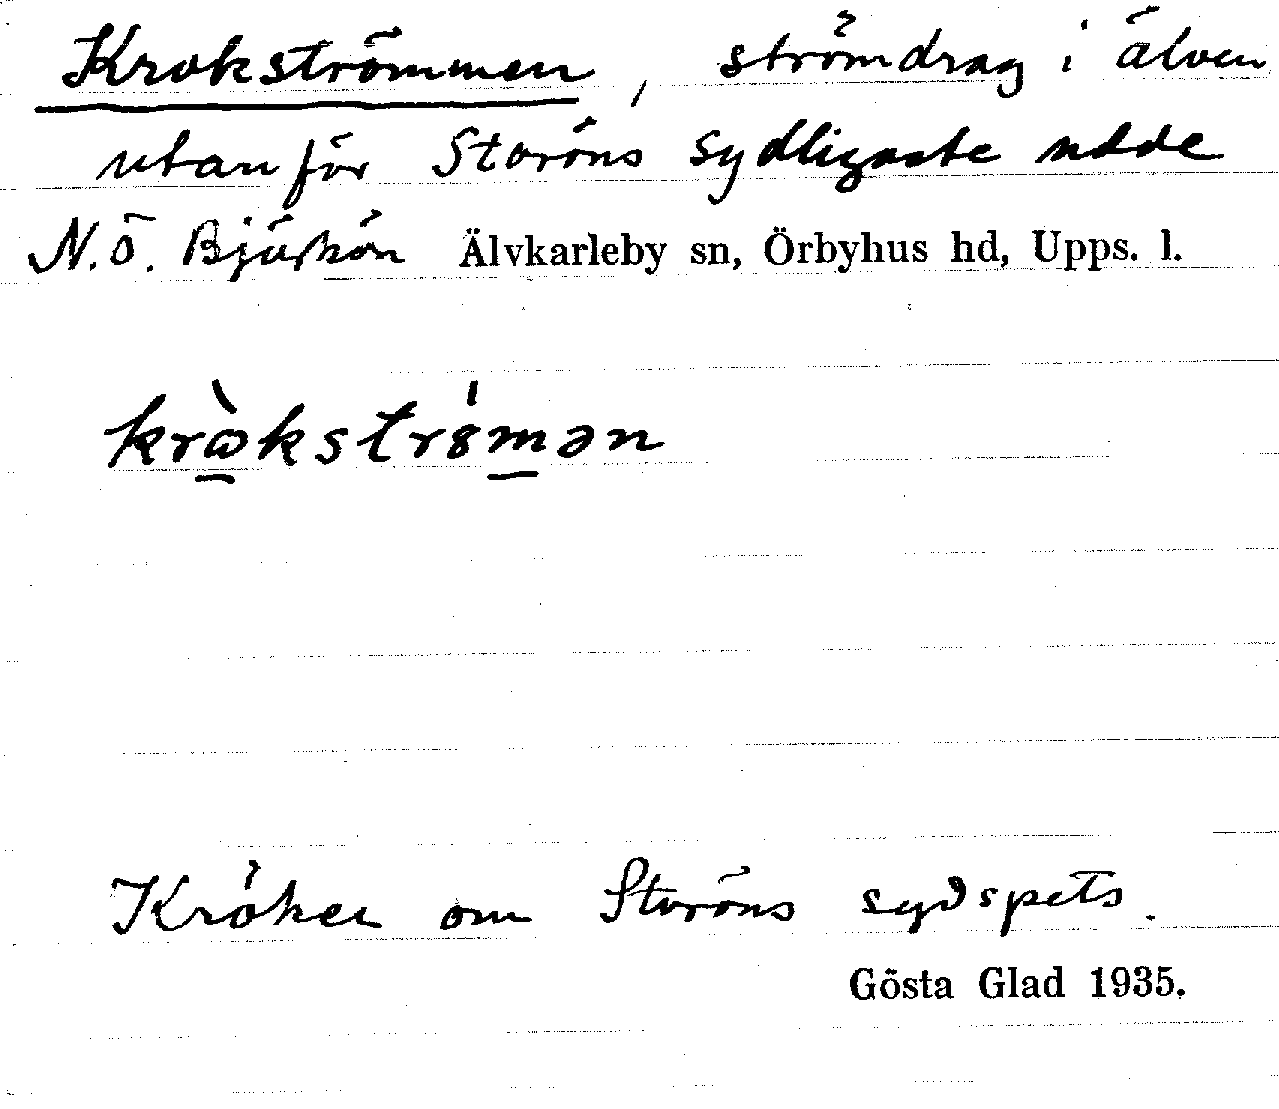 Krokströmmen, strömdrag i älven
utanför Storöns sydligaste udde
N.Ö. Björkön Älvkarleby sn, Örbyhus hd, Upps. l.
kròkstrǿmən
Kröker om Storöns sydspets.
Gösta Glad 1935.